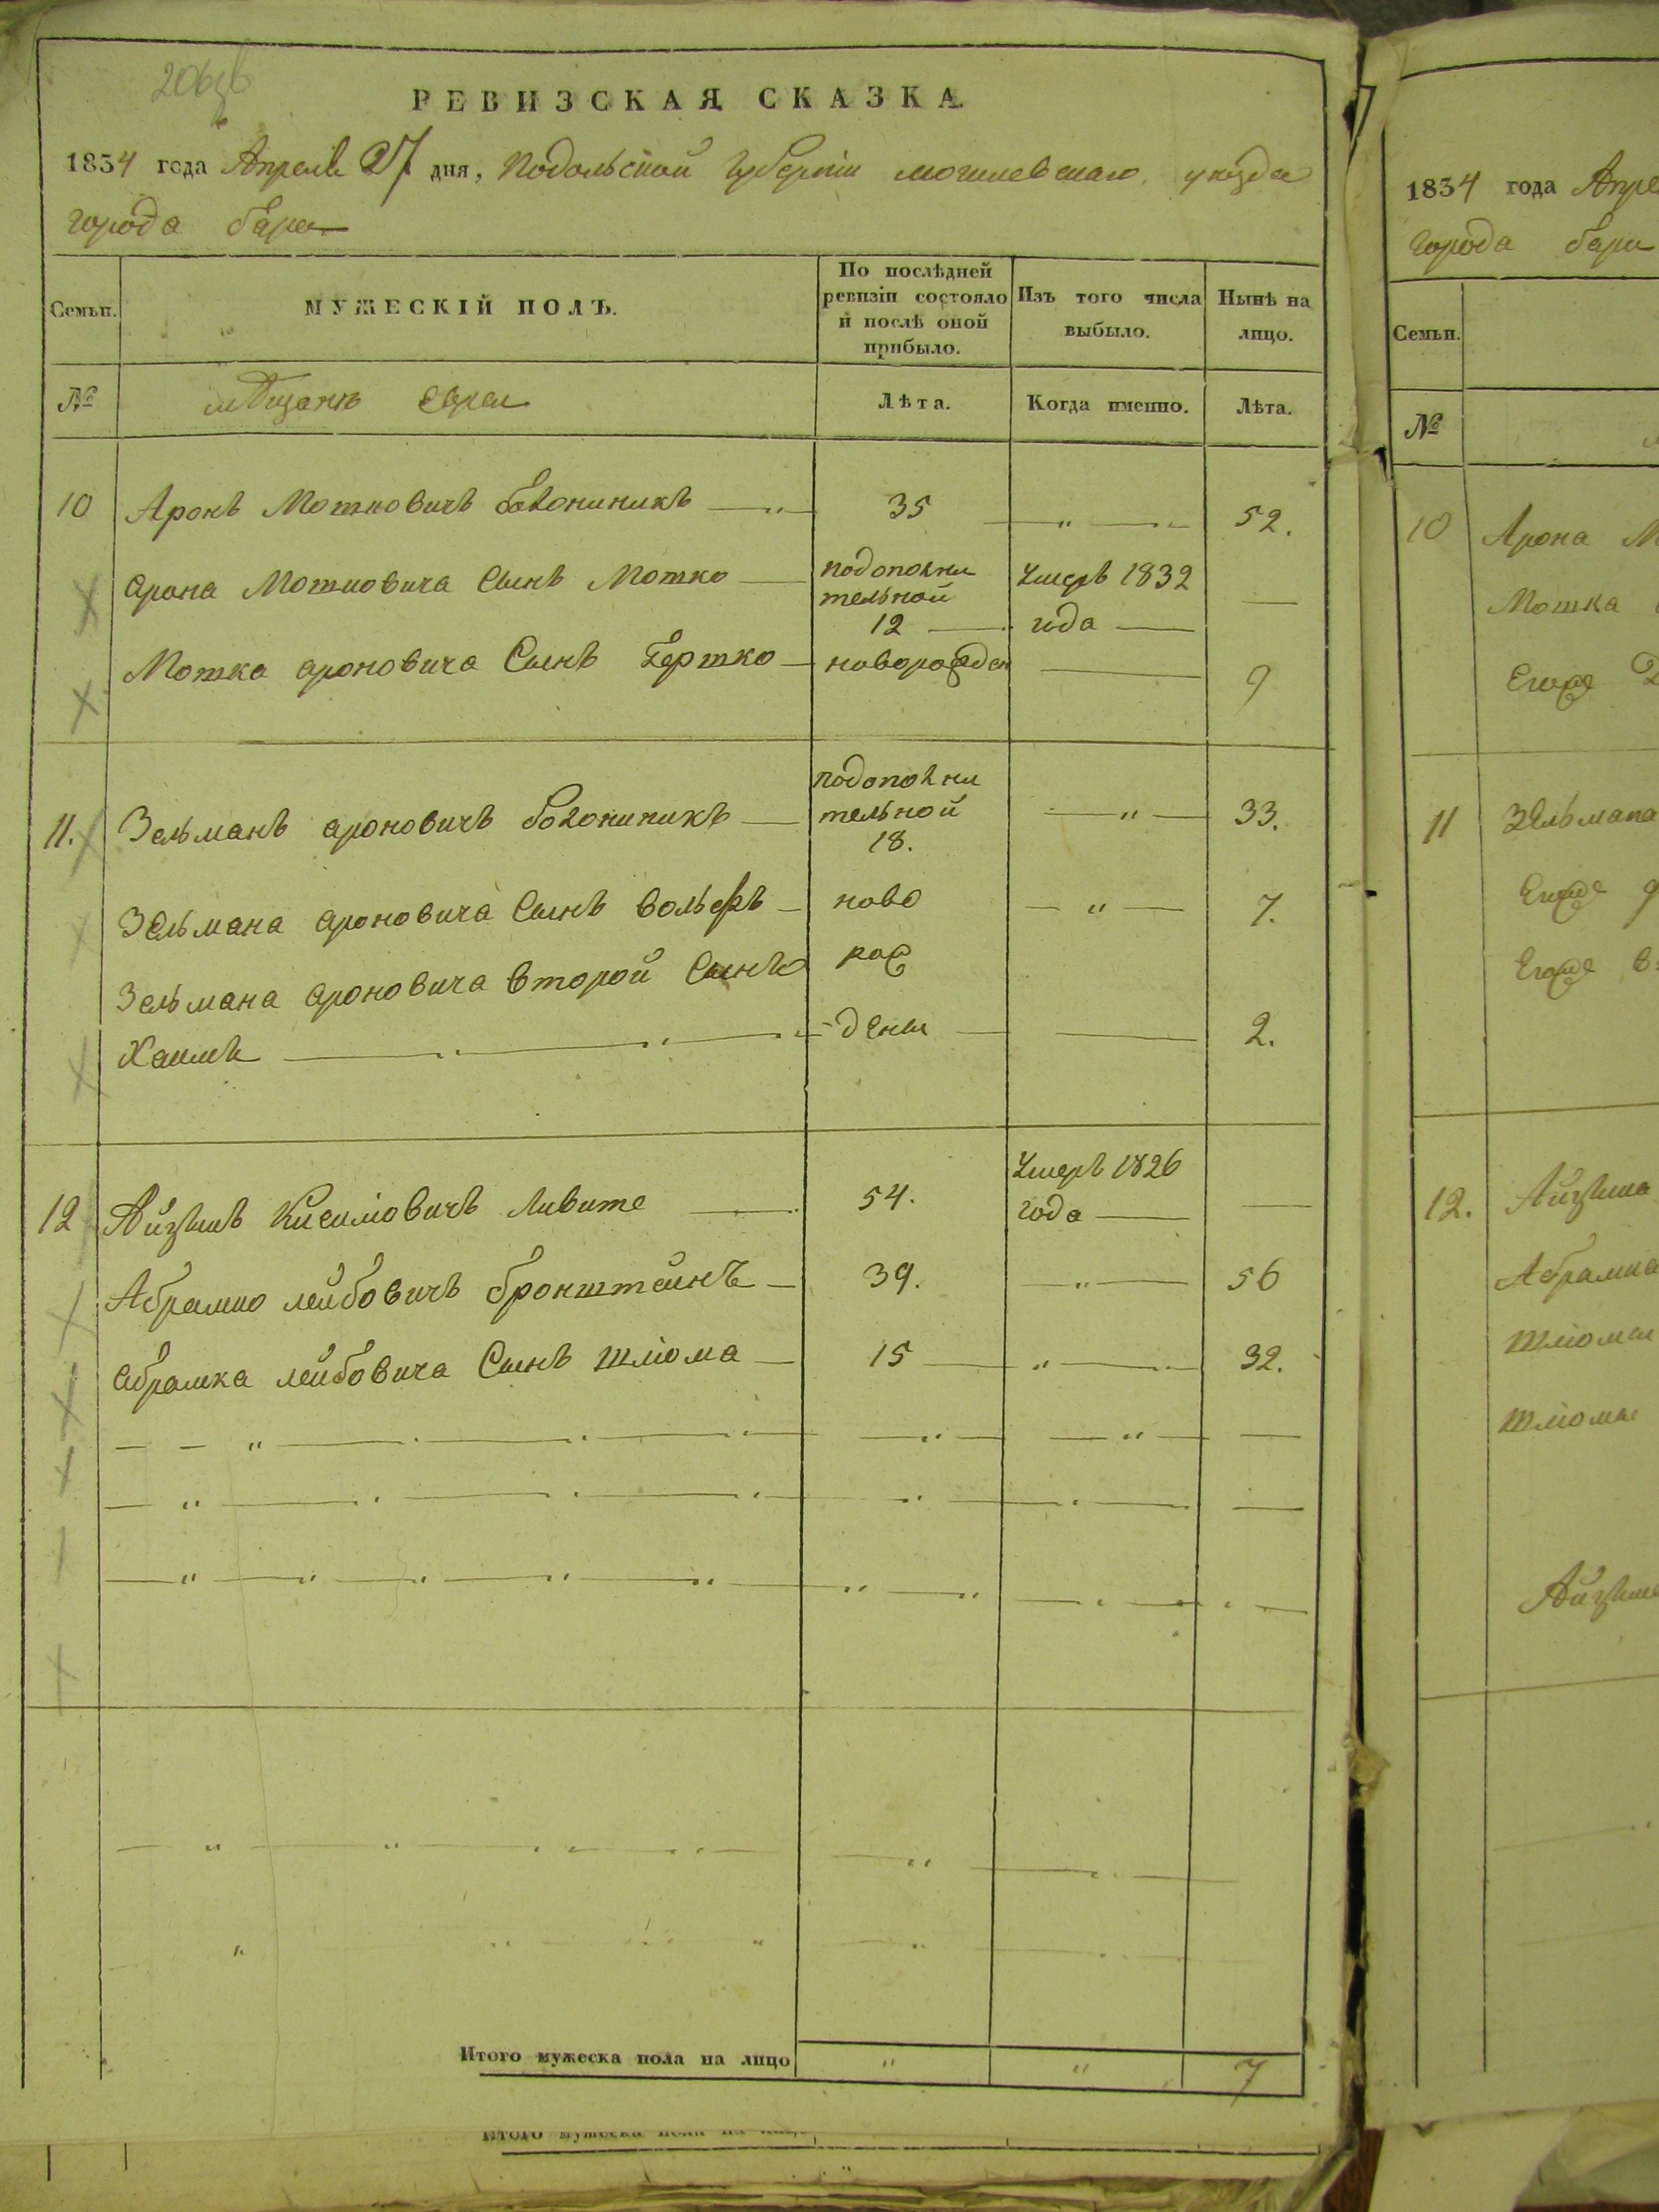 РЕВИЗСКАЯ СКАЗКА.
1834 года Апреля 27 дня, Подольской Губерніи могилевскаго уезда
города бара
Семьи.
МУЖЕСКІЙ ПОЛЪ.
По послѣдней
ревизіи состояло
и послѣ оной
прибыло.
Изъ того числа
выбыло.
Нынѣ на
лицо.
№
мѣщанѣ евреи
Лѣта.
Когда именно.
Лѣта.
10 Аронъ Мотковичъ 35 „ 52.
Арона Мотковича Сынъ Мотко подополни
тельной
12
Умеръ 1832
года
Мотка ароновича Сынъ Берко новорожден 9
11. Зельманъ ароновичъ подополни
тельной
18.
„ 33.
Зельмана ароновича Сынъ вольфъ ново „ 7.
Зельмана ароновича второй Сынъ рож
Хаимъ дены 2.
12 Айзикъ Ливите 54. Умеръ 1826
года
Абрамко лейбовичъ бронштейнъ 39. „ 56
Абрамка лейбовича Сынъ шліома 15 „ 32.
Итого мужеска пола на лицо „ „ 7
1834 года Апре
города бара
Семьи.
№
10 Арона М
Мошка
Егоже
11 Зельмана
Егоже
Егоже в
12. Айзика
Абрамка
шліомы
шліомы
Айзика
Итого мужеска пола на лицо